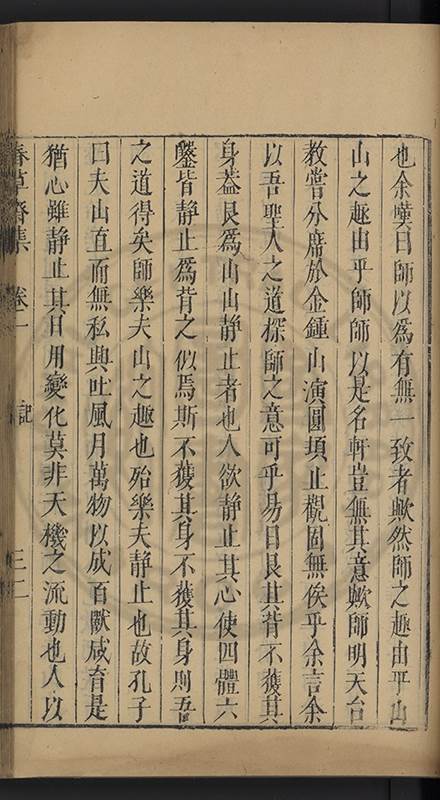 也余嘆曰師以為有無一致者歟然師之趣由乎山
山之趣由乎師師以是名軒豈無其意歟師明天台
教嘗分席於金鍾山演圓頂止觀固無俟乎余言余
以吾聖人之道探師之意可乎易曰艮其背不獲其
身蓋艮為山山靜止者也人欲靜止其心使四體六
鑿皆靜止為背之似焉斯不獲其身不獲其身則吾
之道得矣師樂夫山之趣也殆樂夫靜止也故孔子
曰夫山直而無私興吐風月萬物以成百獸咸育是
猶心雖靜止其日用變化莫非天機之流動也人以
春草齋集 卷一 記 三二